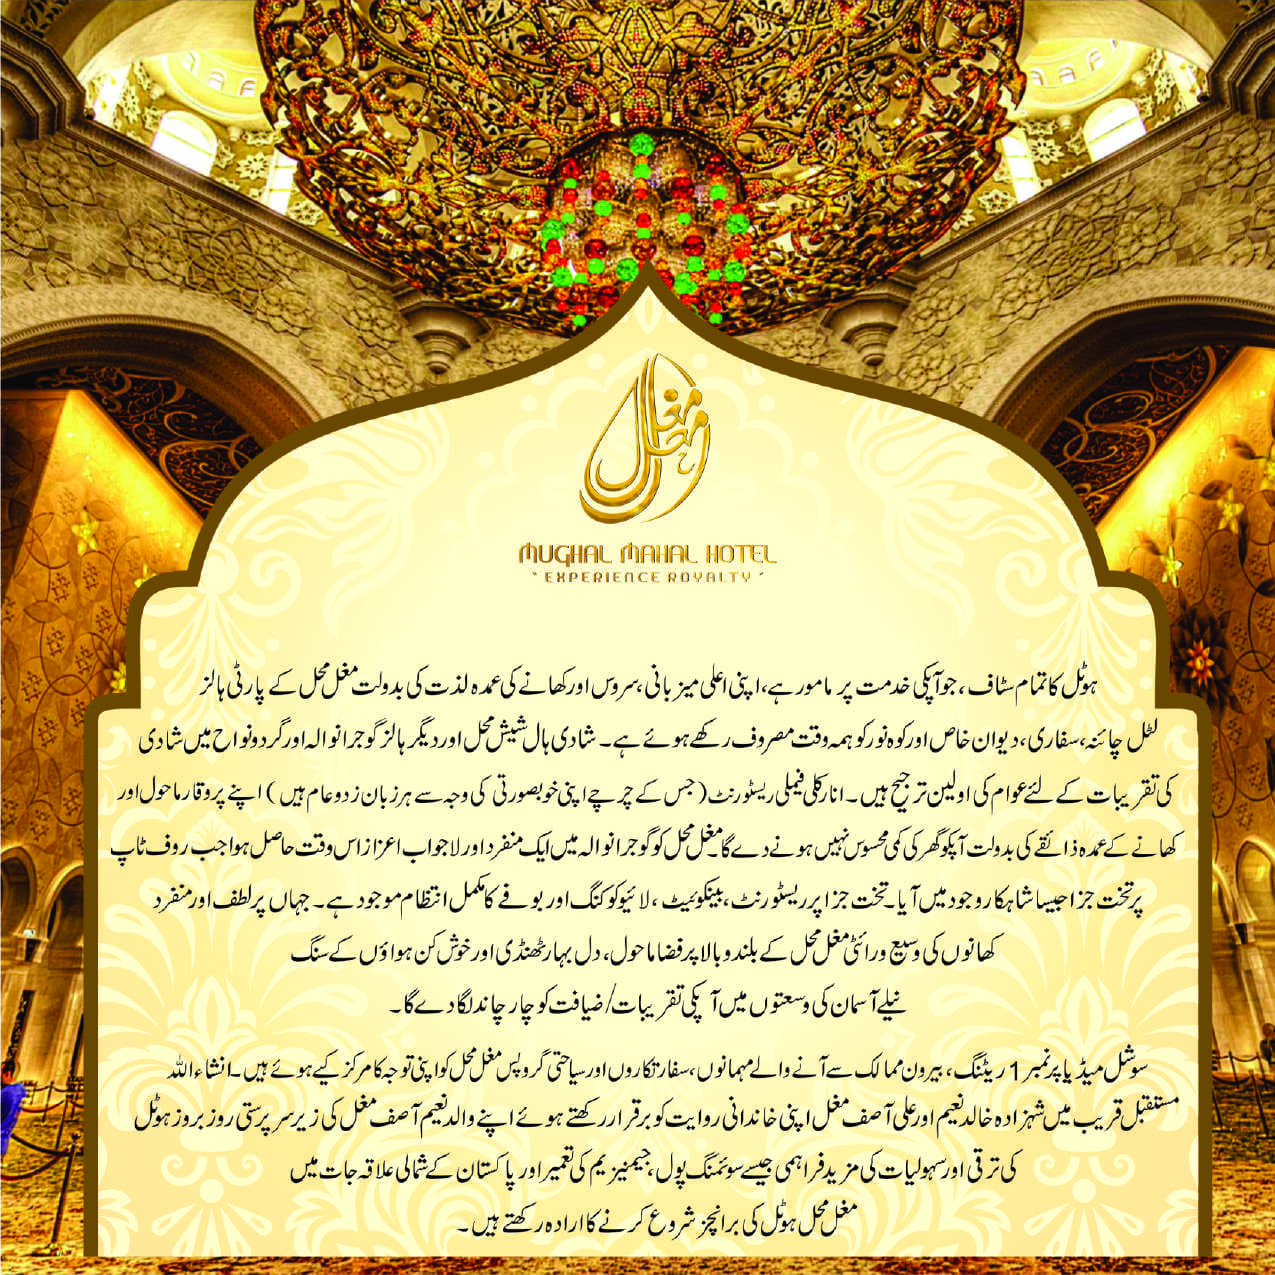 مغل محل
MUGHAL MAHAL HOTEL
" EXPERIENCE ROYALTY "
ہوٹل کا تمام سٹاف ، جو آپکی خدمت پر مامور ہے، اپنی اعلی میزبانی ،سروس اور کھانے کی عمدہ لذت کی بدولت مغل محل کے پارٹی ہالز
لٹل چائنہ، سفاری، دیوان خاص اور کوہ نور کو ہمہ وقت مصروف رکھے ہوئے ہے۔ شادی ہال شیش محل اور دیگر ہالز گوجرانوالہ اور گردونواح میں شادی
کی تقریبات کے لئے عوام کی اولین ترجیح ہیں۔ انارکلی فیملی ریسٹورنٹ (جس کے چرچے اپنی خوبصورتی کی وجہ سے ہر زبان زدو عام ہیں ) اپنے پروقار ماحول اور
کھانے کے عمدہ ذائقے کی بدولت آپکو گھر کی کمی محسوس نہیں ہونے دے گا۔ مغل محل کو گوجرانوالہ میں ایک منفرد اور لاجواب اعزاز اس وقت حاصل ہوا جب روف ٹاپ
پر تخت جزا جیسا شاہکار وجود میں آیا۔ تخت جزا پر ریسٹورنٹ، بینکوئیٹ ، لائیو کوکنگ اور بوفے کا مکمل انتظام موجود ہے۔ جہاں پر لطف اور منفرد
کھانوں کی وسیع ورائٹی مغل محل کے بلند و بالا پرفضا ماحول، دل بہار ٹھنڈی اور خوش کن ہواؤں کے سنگ
نیلے آسمان کی وسعتوں میں آپکی تقریبات/ضیافت کو چار چاند لگا دے گا۔
سوشل میڈیا پر نمبر 1 ریٹنگ، بیرون ممالک سے آنے والے مہمانوں، سفارتکاروں اور سیاحتی گروپس مغل محل کو اپنی توجہ کا مرکز کیے ہوئے ہیں۔ انشاءاللہ
مستقبل قریب میں شہزادہ خالد نعیم اور علی آصف مغل اپنی خاندانی روایت کو برقرار رکھتے ہوئے اپنے والد نعیم آصف مغل کی زیر سرپرستی روز بروز ہوٹل
کی ترقی اور سہولیات کی مزید فراہمی جیسے سوئمنگ پول ، جیمنیزیم کی تعمیر اور پاکستان کے شمالی علاقہ جات میں
مغل محل ہوٹل کی برانچز شروع کرنے کا ارادہ رکھتے ہیں۔